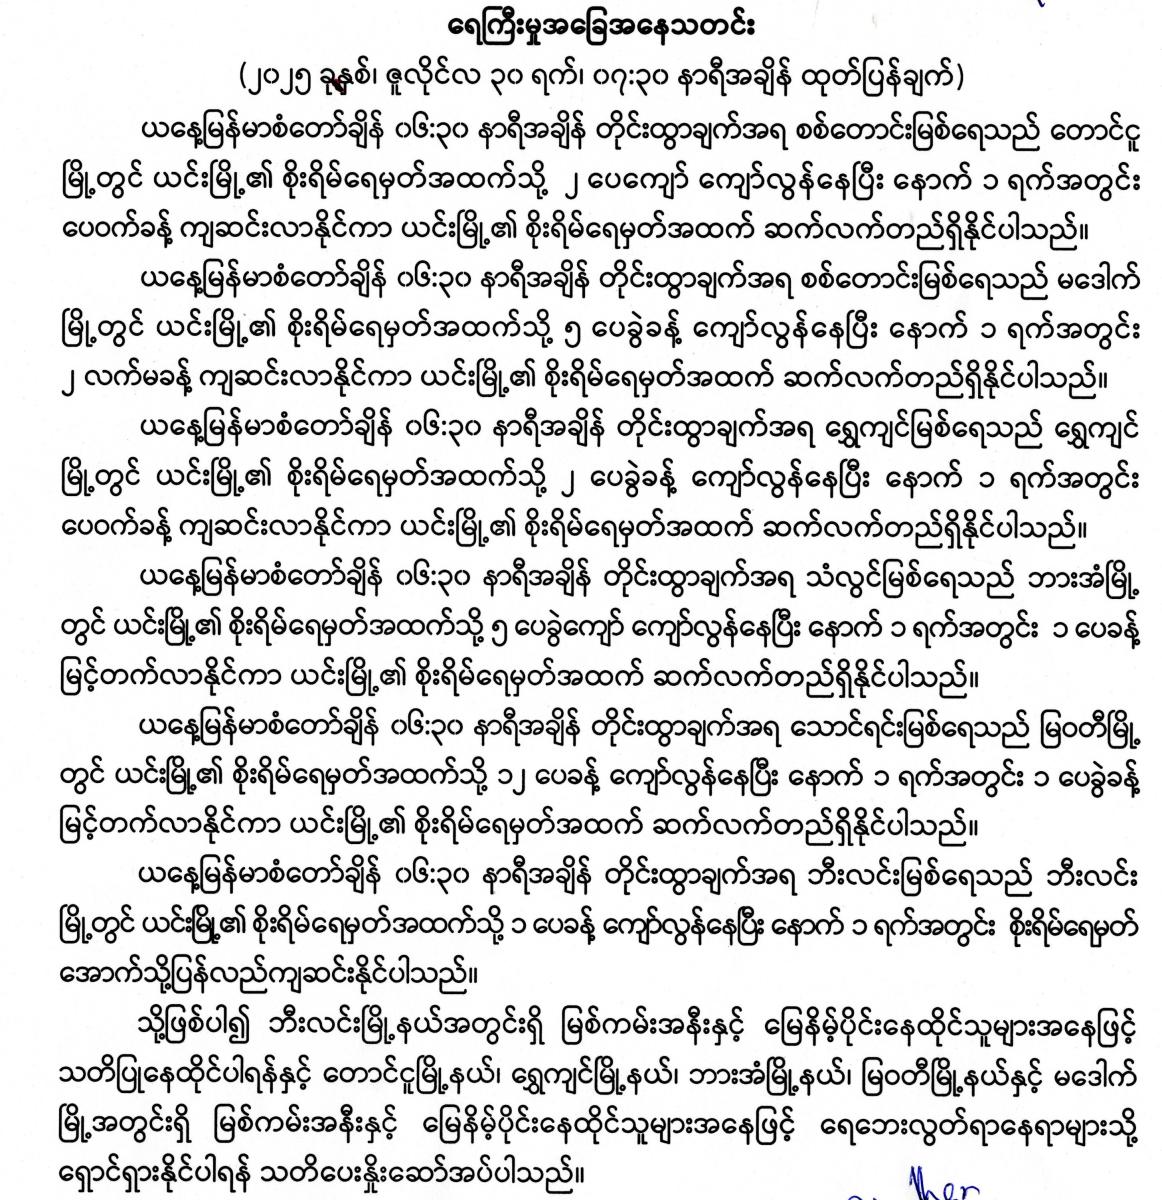 ရေကြီးမှုအခြေအနေသတင်း
(၂၀၂၅ ခုနှစ်၊ ဇူလိုင်လ ၃၀ ရက်၊ ၀၇:၃၀ နာရီအချိန် ထုတ်ပြန်ချက်)
ယနေ့မြန်မာစံတော်ချိန် ၀၆:၃၀ နာရီအချိန် တိုင်းထွာချက်အရ စစ်တောင်းမြစ်ရေသည် တောင်ငူ
မြို့တွင် ယင်းမြို့၏ စိုးရိမ်ရေမှတ်အထက်သို့ ၂ ပေကျော် ကျော်လွန်နေပြီး နောက် ၁ ရက်အတွင်း
ပေဝက်ခန့် ကျဆင်းလာနိုင်ကာ ယင်းမြို့၏ စိုးရိမ်ရေမှတ်အထက် ဆက်လက်တည်ရှိနိုင်ပါသည်။
ယနေ့မြန်မာစံတော်ချိန် ၀၆:၃၀ နာရီအချိန် တိုင်းထွာချက်အရ စစ်တောင်းမြစ်ရေသည် မဒေါက်
မြို့တွင် ယင်းမြို့၏ စိုးရိမ်ရေမှတ်အထက်သို့ ၅ ပေခွဲခန့် ကျော်လွန်နေပြီး နောက် ၁ ရက်အတွင်း
၂ လက်မခန့် ကျဆင်းလာနိုင်ကာ ယင်းမြို့၏ စိုးရိမ်ရေမှတ်အထက် ဆက်လက်တည်ရှိနိုင်ပါသည်။
ယနေ့မြန်မာစံတော်ချိန် ၀၆:၃၀ နာရီအချိန် တိုင်းထွာချက်အရ ရွှေကျင်မြစ်ရေသည် ရွှေကျင်
မြို့တွင် ယင်းမြို့၏ စိုးရိမ်ရေမှတ်အထက်သို့ ၂ ပေခွဲခန့် ကျော်လွန်နေပြီး နောက် ၁ ရက်အတွင်း
ပေဝက်ခန့် ကျဆင်းလာနိုင်ကာ ယင်းမြို့၏ စိုးရိမ်ရေမှတ်အထက် ဆက်လက်တည်ရှိနိုင်ပါသည်။
ယနေ့မြန်မာစံတော်ချိန် ၀၆:၃၀ နာရီအချိန် တိုင်းထွာချက်အရ သံလွင်မြစ်ရေသည် ဘားအံမြို့
တွင် ယင်းမြို့၏ စိုးရိမ်ရေမှတ်အထက်သို့ ၅ ပေခွဲကျော် ကျော်လွန်နေပြီး နောက် ၁ ရက်အတွင်း ၁ ပေခန့်
မြင့်တက်လာနိုင်ကာ ယင်းမြို့၏ စိုးရိမ်ရေမှတ်အထက် ဆက်လက်တည်ရှိနိုင်ပါသည်။
ယနေ့မြန်မာစံတော်ချိန် ၀၆:၃၀ နာရီအချိန် တိုင်းထွာချက်အရ သောင်ရင်းမြစ်ရေသည် မြဝတီမြို့
တွင် ယင်းမြို့၏ စိုးရိမ်ရေမှတ်အထက်သို့ ၁၂ ပေခန့် ကျော်လွန်နေပြီး နောက် ၁ ရက်အတွင်း ၁ ပေခွဲခန့်
မြင့်တက်လာနိုင်ကာ ယင်းမြို့၏ စိုးရိမ်ရေမှတ်အထက် ဆက်လက်တည်ရှိနိုင်ပါသည်။
ယနေ့မြန်မာစံတော်ချိန် ၀၆:၃၀ နာရီအချိန် တိုင်းထွာချက်အရ ဘီးလင်းမြစ်ရေသည် ဘီးလင်း
မြို့တွင် ယင်းမြို့၏ စိုးရိမ်ရေမှတ်အထက်သို့ ၁ ပေခန့် ကျော်လွန်နေပြီး နောက် ၁ ရက်အတွင်း စိုးရိမ်ရေမှတ်
အောက်သို့ပြန်လည်ကျဆင်းနိုင်ပါသည်။
သို့ဖြစ်ပါ၍ ဘီးလင်းမြို့နယ်အတွင်းရှိ မြစ်ကမ်းအနီးနှင့် မြေနိမ့်ပိုင်းနေထိုင်သူများအနေဖြင့်
သတိပြုနေထိုင်ပါရန်နှင့် တောင်ငူမြို့နယ်၊ ရွှေကျင်မြို့နယ်၊ ဘားအံမြို့နယ်၊ မြဝတီမြို့နယ်နှင့် မဒေါက်
မြို့အတွင်းရှိ မြစ်ကမ်းအနီးနှင့် မြေနိမ့်ပိုင်းနေထိုင်သူများအနေဖြင့် ရေဘေးလွတ်ရာနေရာများသို့
ရှောင်ရှားနိုင်ပါရန် သတိပေးနှိုးဆော်အပ်ပါသည်။